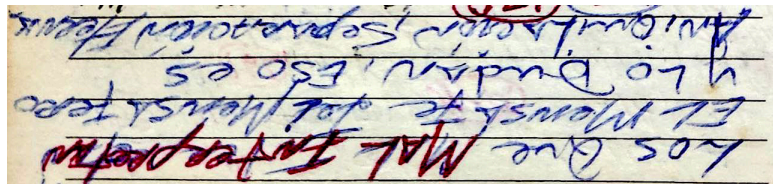 Los que MAL INTerpretan
EL MensaJe del MensaJero
y Lo Dudan, ESO es
ANiQuilación, Separación Eterna